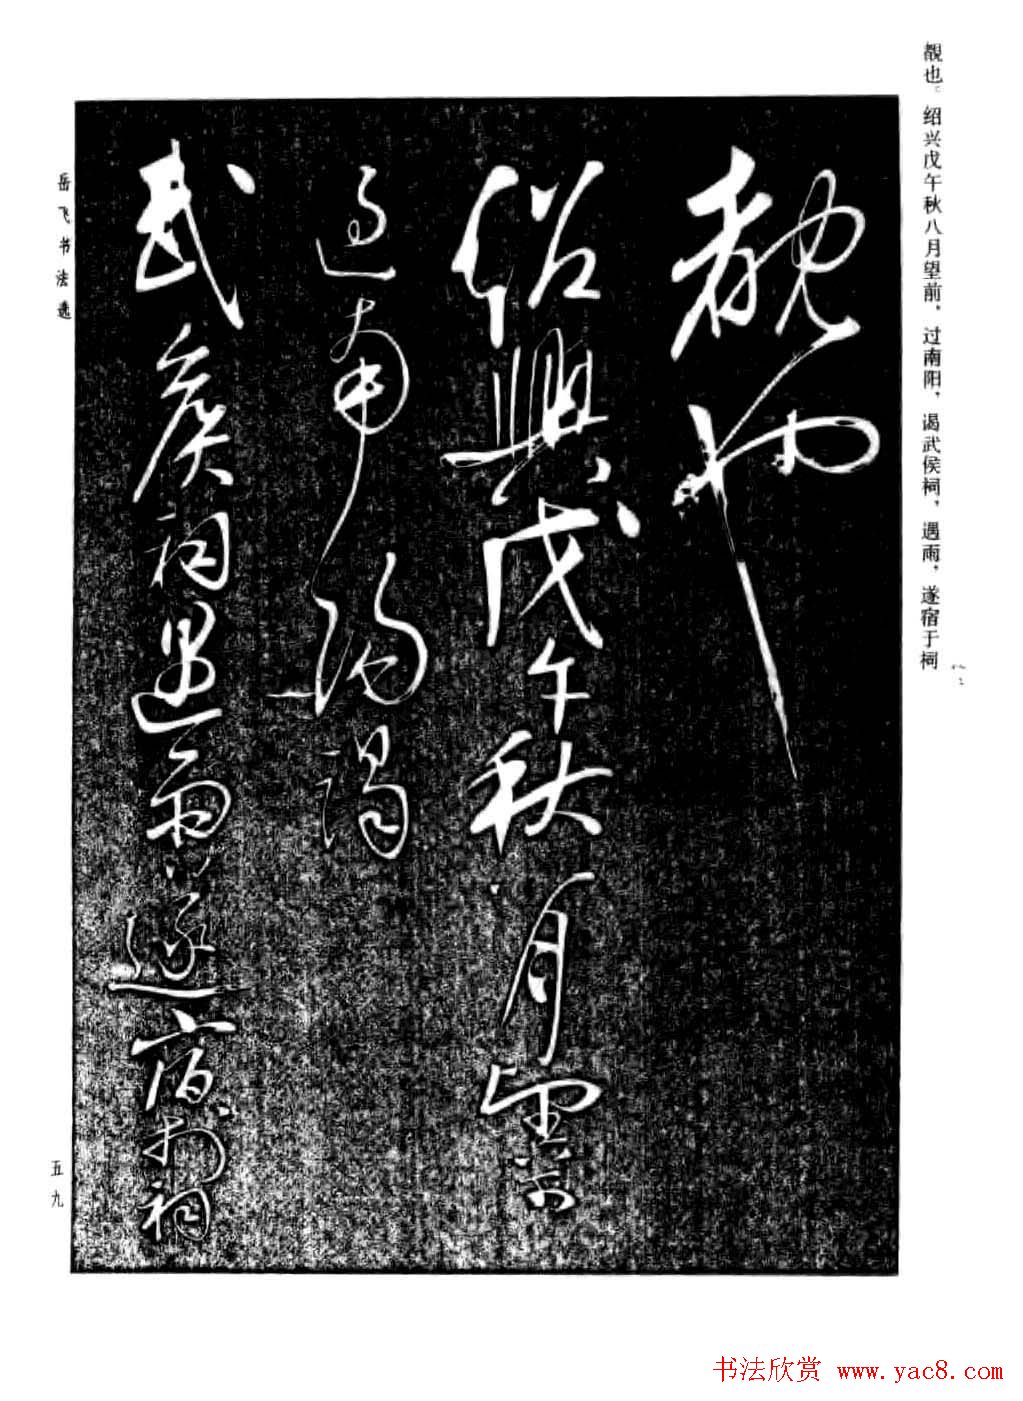 覩也。绍兴戊午秋八月望前，过南阳，谒武侯祠，遇雨，遂宿于祠
覩也
紹興戊午秋八月望前
過南陽謁
武侯祠遇雨遂宿於祠
岳飞书法选
五九
书法欣赏 www.yac8.com